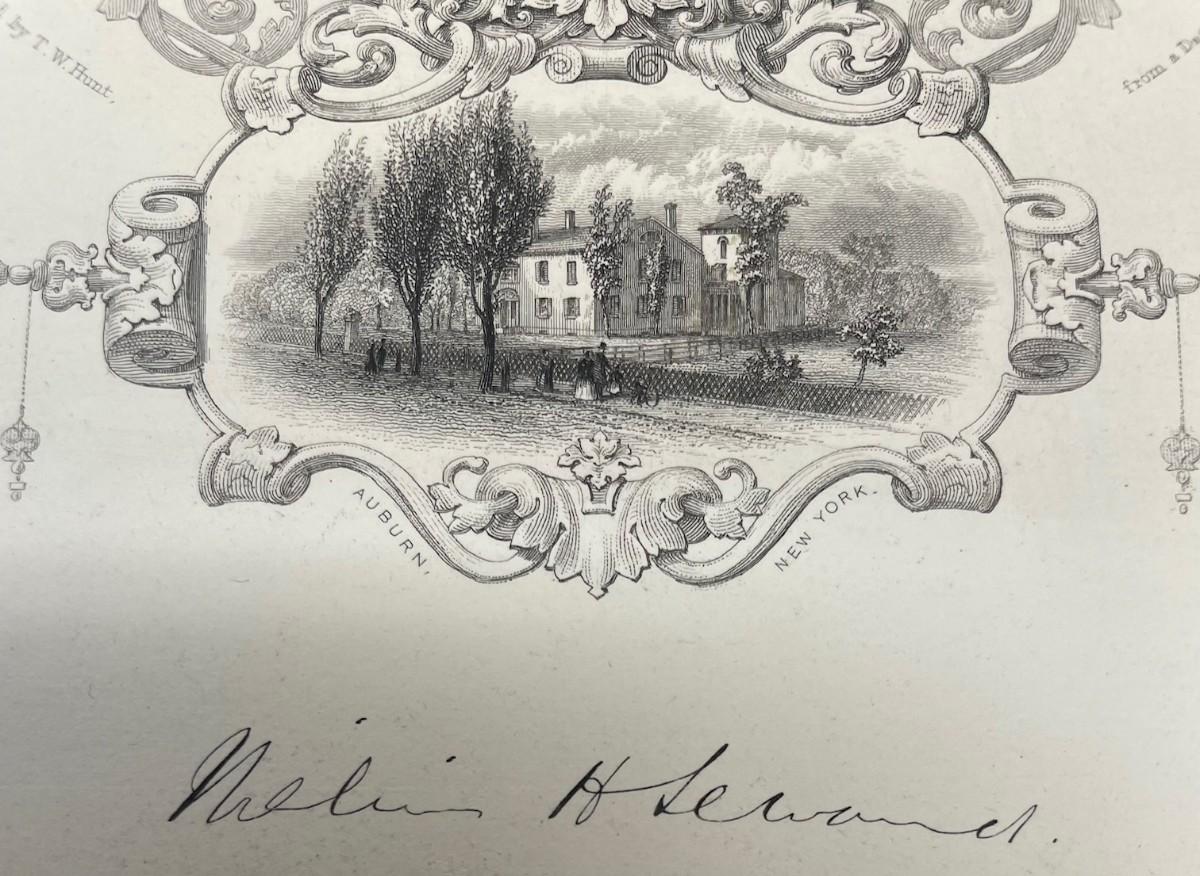 by T. W. Hunt,
from a
AUBURN,
NEW YORK.
William H Seward.